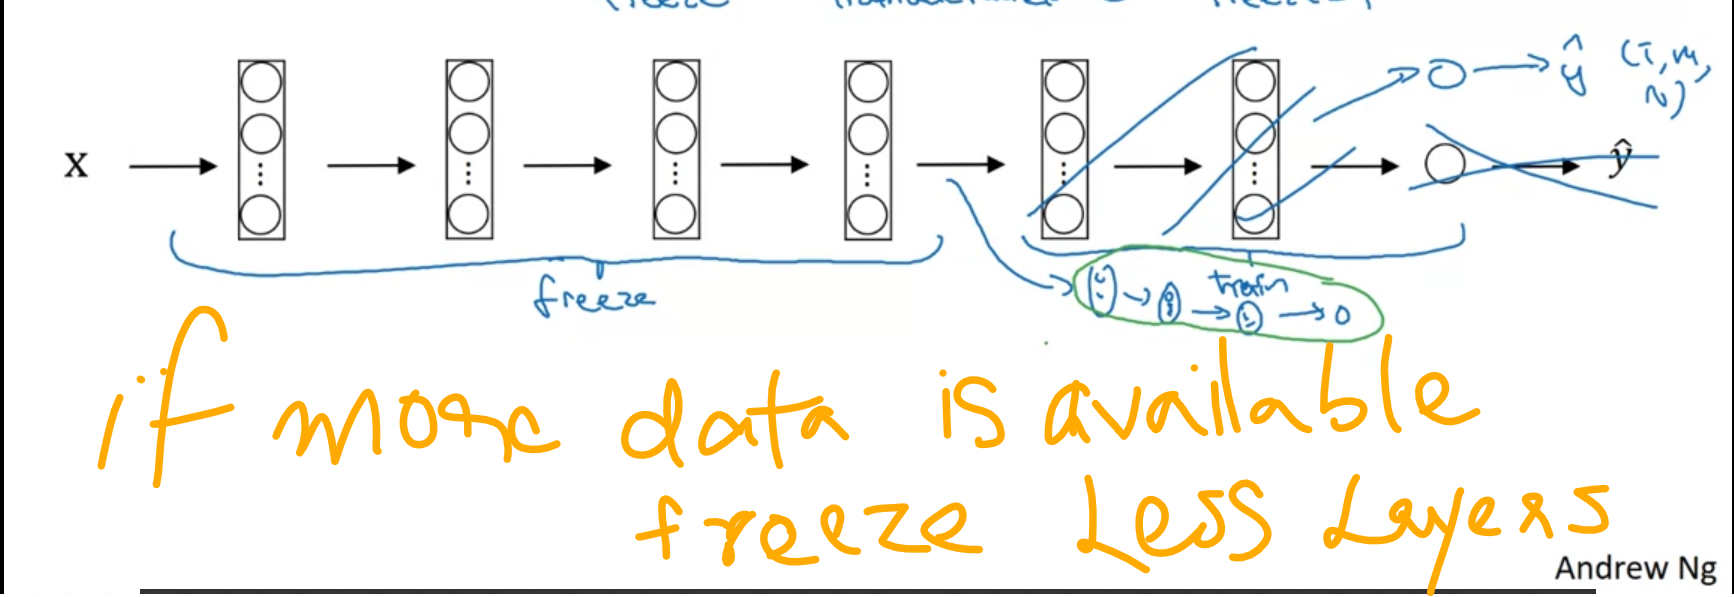 x
ŷ
ŷ (T, M, N)
freeze
train
if more data is available
freeze Less Layers
Andrew Ng